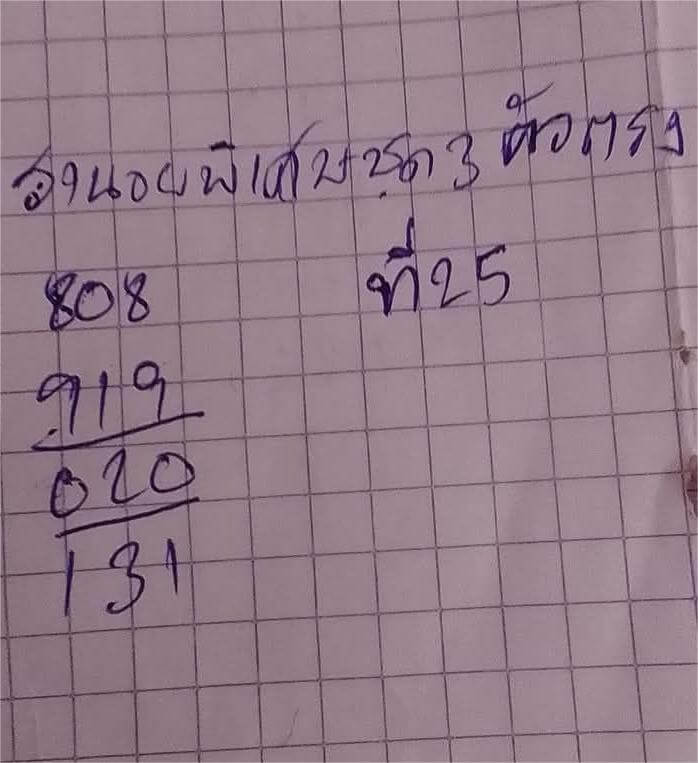 ฮานอยพิเศษชุด 3 ตัวตรง
808 ที่25
919
020
131